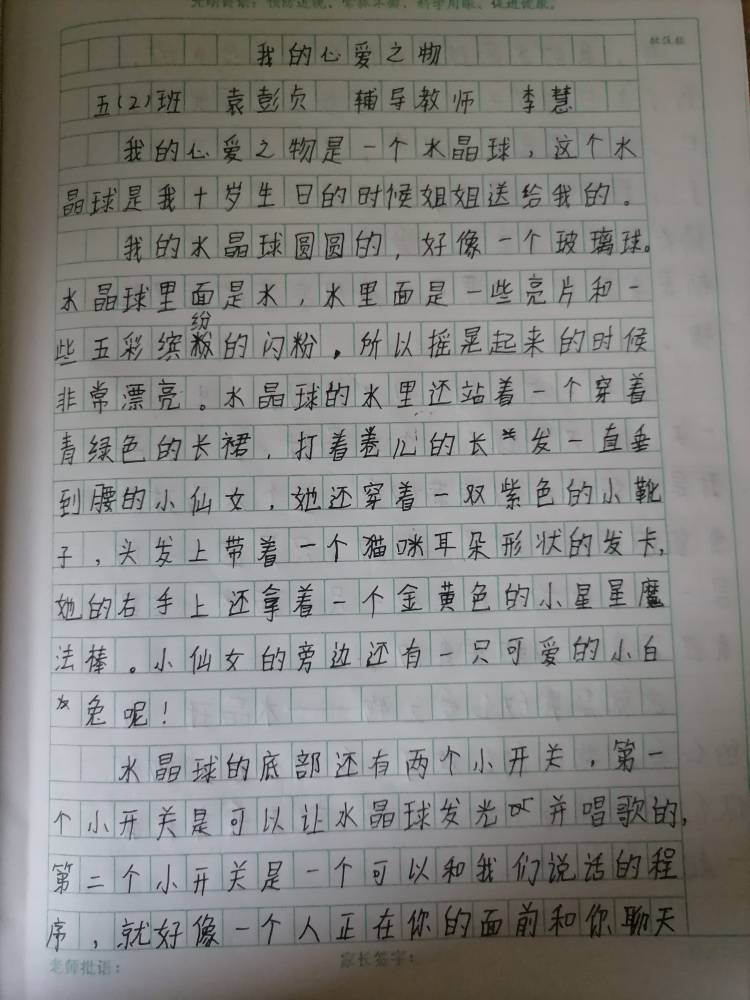 我的心爱之物
五(2)班 袁彭贞 辅导教师 李慧
我的心爱之物是一个水晶球，这个水
晶球是我十岁生日的时候姐姐送给我的。
我的水晶球圆圆的，好像一个玻璃球。
水晶球里面是水，水里面是一些亮片和一
些五彩缤纷的闪粉，所以摇晃起来的时候
非常漂亮。水晶球的水里还站着一个穿着
青绿色的长裙，打着卷儿的长发一直垂
到腰的小仙女，她还穿着一双紫色的小靴
子，头发上带着一个猫咪耳朵形状的发卡，
她的右手上还拿着一个金黄色的小星星魔
法棒。小仙女的旁边还有一只可爱的小白
兔呢！
水晶球的底部还有两个小开关，第一
个小开关是可以让水晶球发光并唱歌的，
第二个小开关是一个可以和我们说话的程
序，就好像一个人正在你的面前和你聊天
老师批语： 家长签字：